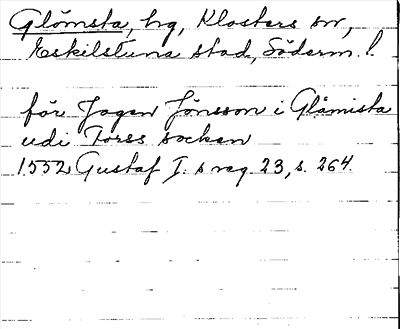 Glömsta, hg, Klosters sn,
Eskilstuna stad, Söderm. l.
för Jagen Jönsson i Glåmista
udi Tores socken
1552 Gustaf I:s reg. 23, s. 264.